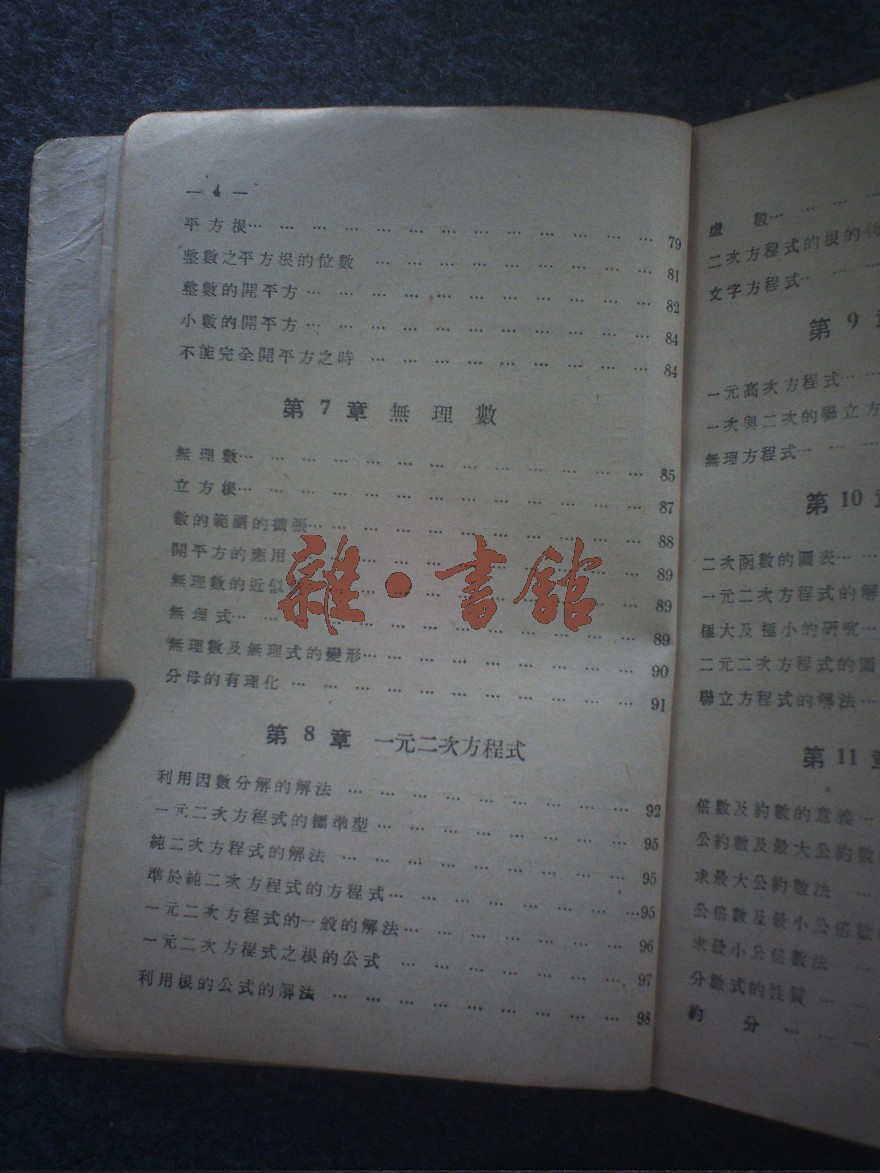 — 4 —
平方根… … … … … … … … … … … … … 79
整數之平方根的位數 … … … … … … … … … 81
整數的開平方… … … … … … … … … … … 82
小數的開平方… … … … … … … … … … … 84
不能完全開平方之時 … … … … … … … … … 84
第 7 章 無理數
無理數… … … … … … … … … … … … … 85
立方根… … … … … … … … … … … … … 87
數的範圍的擴張… … … … … … … … … … 88
開平方的應用 … … … … … … 89
無理數的近似 … … … … … … 89
無理式… … … … … … … … … … … … … 89
無理數及無理式的變形… … … … … … … … … 90
分母的有理化 … … … … … … … … … … … 91
雜·書館
第 8 章 一元二次方程式
利用因數分解的解法 … … … … … … … … … 92
一元二次方程式的標準型 … … … … … … … … 95
純二次方程式的解法 … … … … … … … … … 95
準於純二次方程式的方程式… … … … … … … …95
一元二次方程式的一般的解法… … … … … … … 96
一元二次方程式之根的公式 … … … … … … … 97
利用根的公式的解法 … … … … … … … … … 98
虛數… … … …
二次方程式的根的
文字方程式… … …
第 9
一元高次方程式… …
一次與二次的聯立方
無理方程式… … …
第 10
二次函數的圖表… …
一元二次方程式的解
極大及極小的研究…
二元二次方程式的圖
聯立方程式的解法…
第 11
倍數及約數的意義…
公約數及最大公約數
求最大公約數法 …
公倍數及最小公倍數
求最小公倍數法 …
分數式的性質 … …
約分 … …